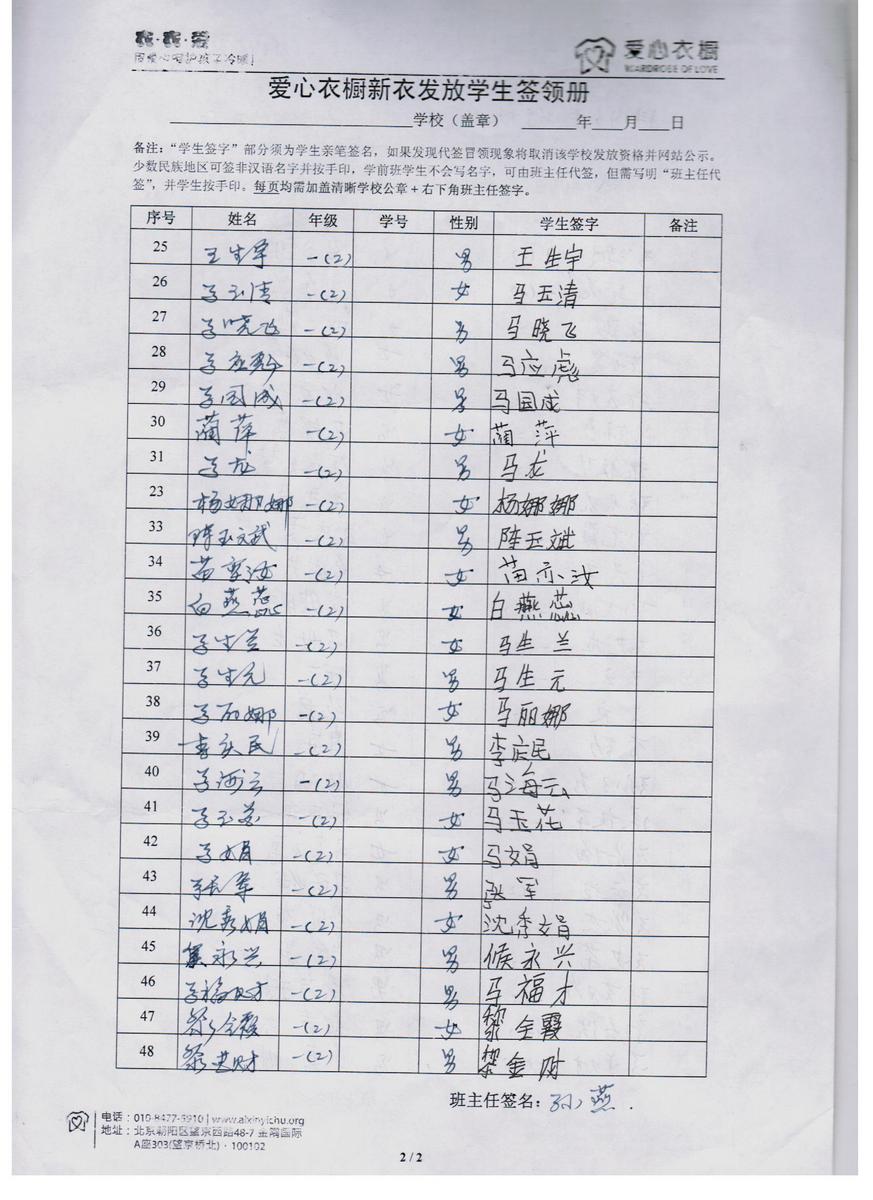 寒·寒·爱
用爱心呵护孩子冷暖!
爱心衣橱
WARDROBE OF LOVE
爱心衣橱新衣发放学生签领册
学校（盖章） 年 月 日
备注：“学生签字”部分须为学生亲笔签名，如果发现代签冒领现象将取消该学校发放资格并网站公示。
少数民族地区可签非汉语名字并按手印，学前班学生不会写名字，可由班主任代签，但需写明“班主任代
签”，并学生按手印。每页均需加盖清晰学校公章+右下角班主任签字。
序号 姓名 年级 学号 性别 学生签字 备注
25 王生宇 一(2) 男 王生宇
26 马玉清 一(2) 女 马玉清
27 马晓飞 一(2) 男 马晓飞
28 马应彪 一(2) 男 马应彪
29 马国成 一(2) 男 马国成
30 蔺萍 一(2) 女 蔺萍
31 马龙 一(2) 男 马龙
23 杨娜娜 一(2) 女 杨娜娜
33 陈玉斌 一(2) 男 陈玉斌
34 苗亦汝 一(2) 女 苗亦汝
35 白燕蕊 一(2) 女 白燕蕊
36 马生兰 一(2) 女 马生兰
37 马生元 一(2) 男 马生元
38 马丽娜 一(2) 女 马丽娜
39 李庆民 一(2) 男 李庆民
40 马海云 一(2) 男 马海云
41 马玉花 一(2) 女 马玉花
42 马娟 一(2) 女 马娟
43 张军 一(2) 男 张军
44 沈秀娟 一(2) 女 沈季娟
45 永兴 一(2) 男 候永兴
46 马福财 一(2) 男 马福才
47 黎全霞 一(2) 女 黎全霞
48 财 一(2) 男 黎金财
班主任签名：孙燕.
电话：010-8477-5910 | www.aixinyichu.org
地址：北京朝阳区望京西路48-7 金隅国际
A座303(望京桥北)·100102
2 / 2